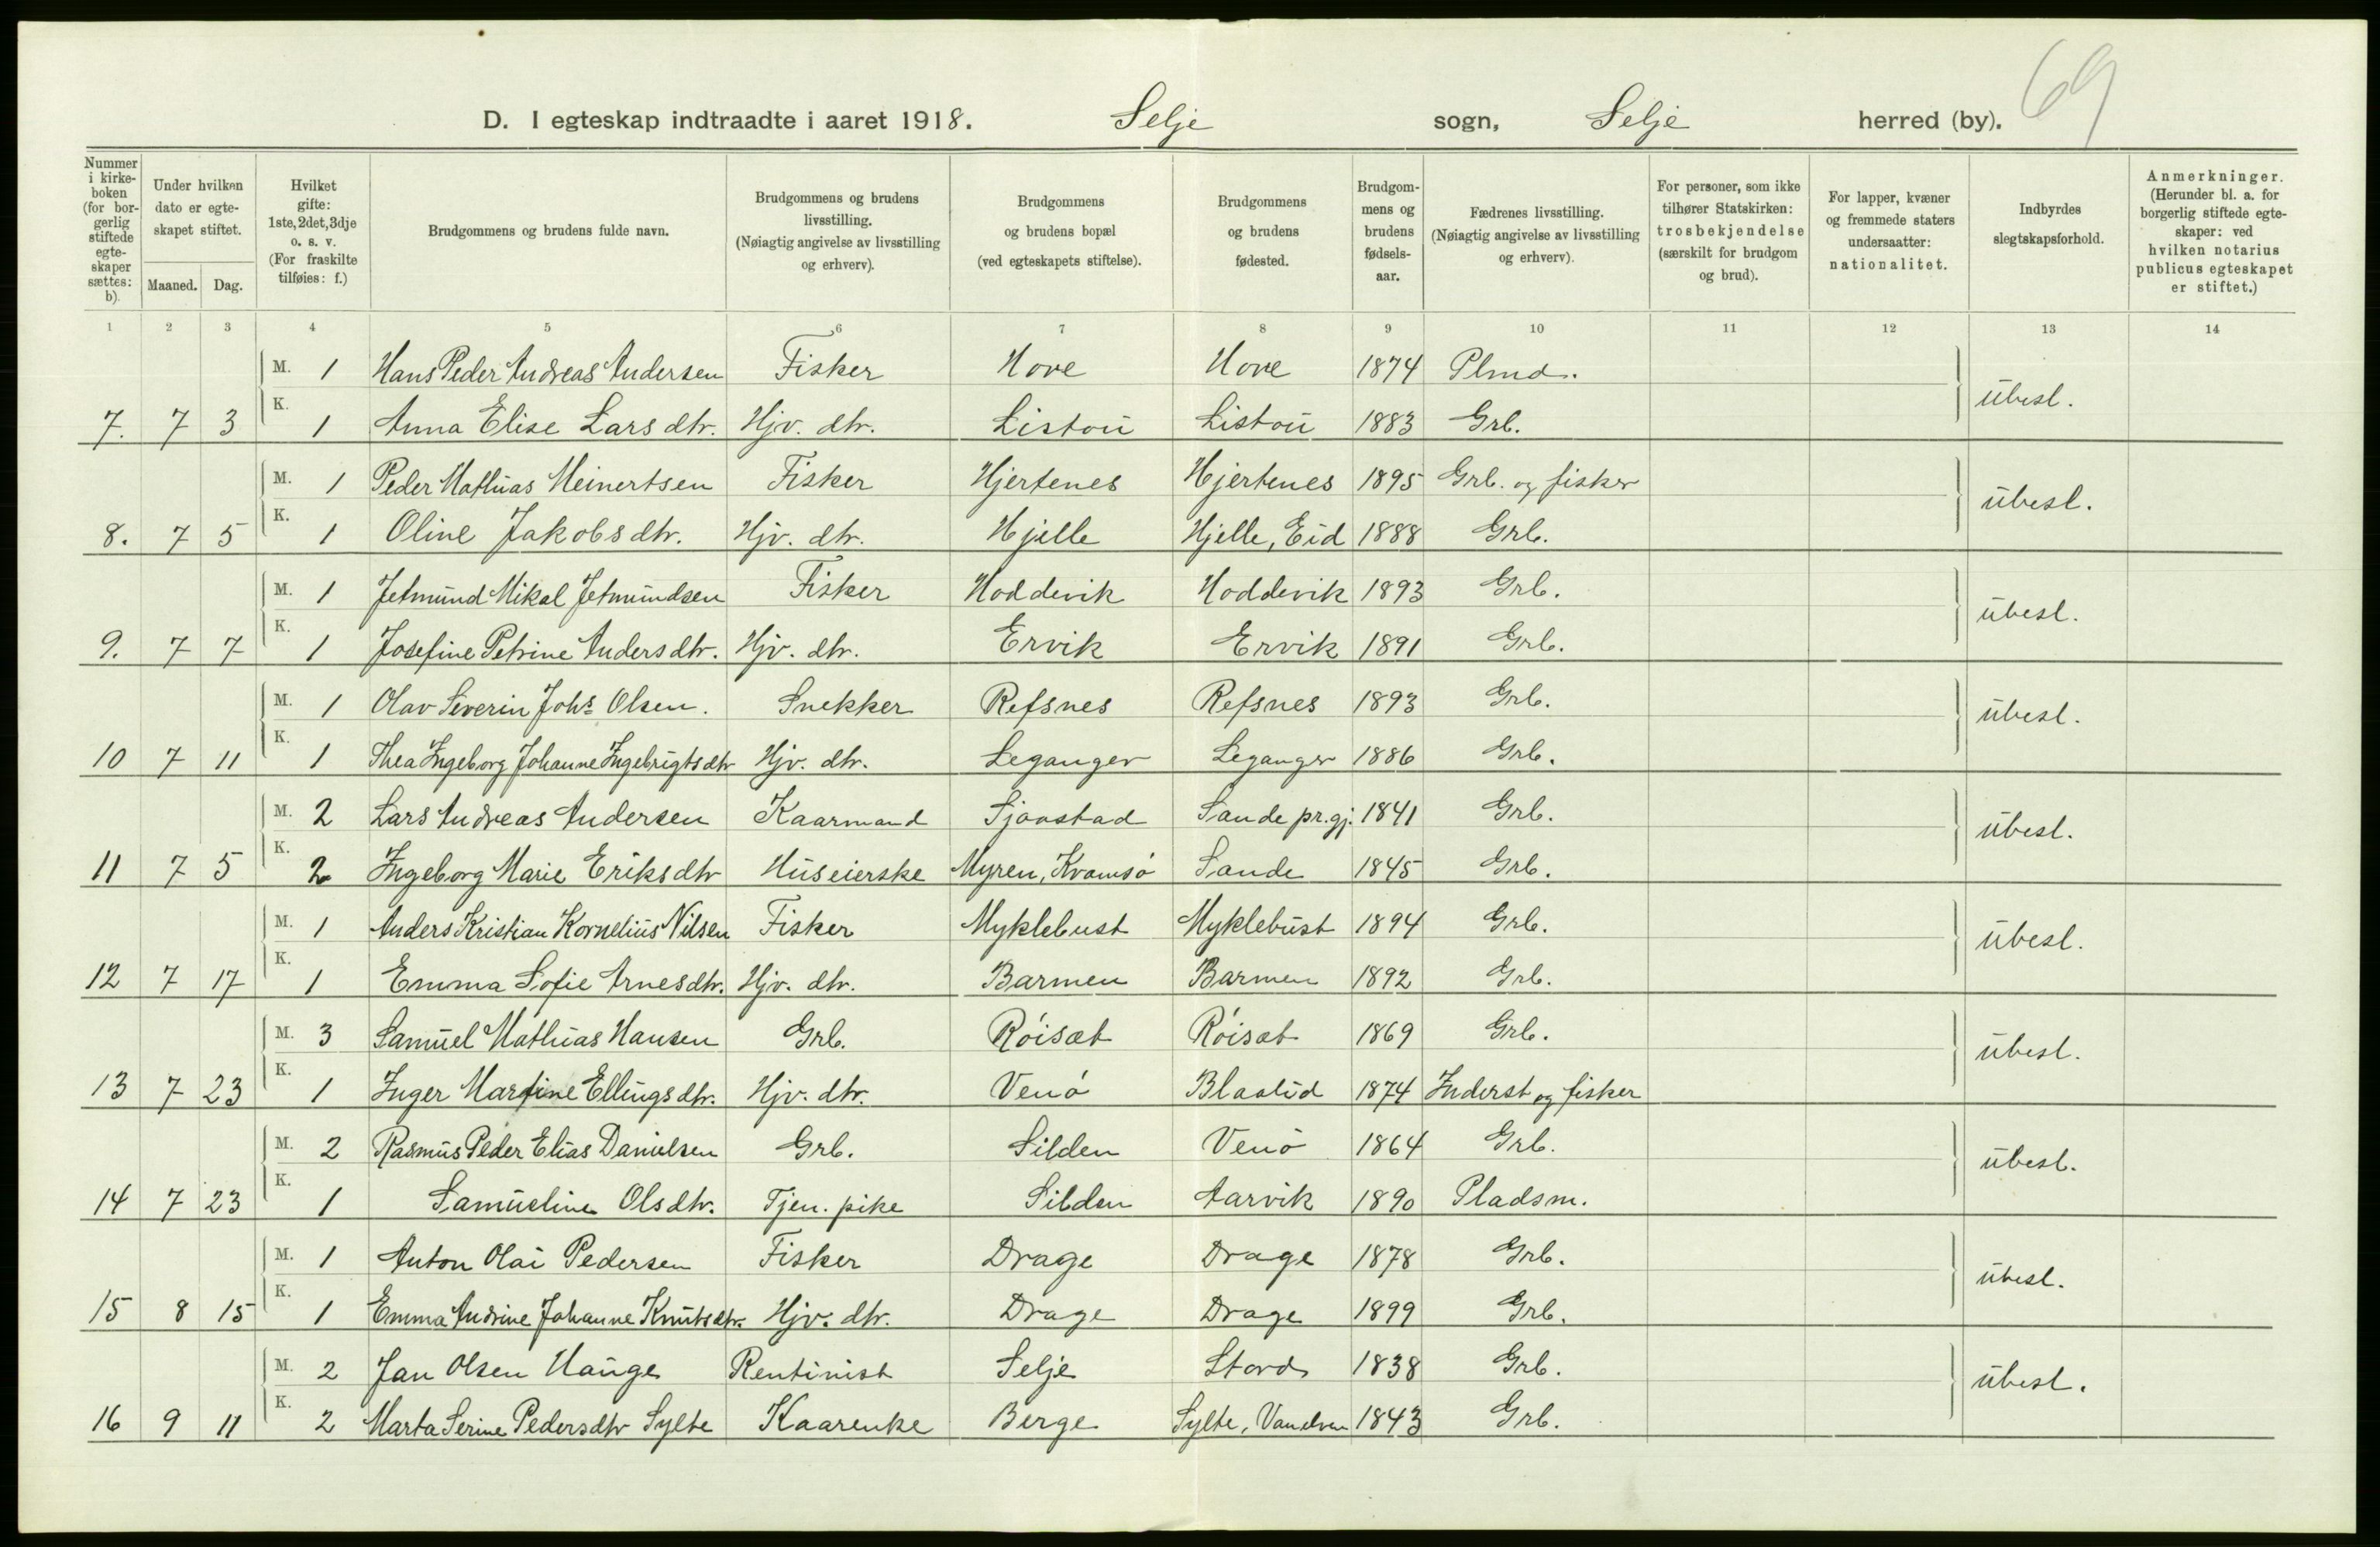 69
D. I egteskap indtraadte i aaret 1918. Selje sogn, Selje herred (by).
Nummer i kirke-boken (for bor-gerlig stiftede egte-skaper sættes: b).
Under hvilken dato er egte-skapet stiftet.
Maaned. Dag.
Hvilket gifte: 1ste, 2det, 3dje o. s. v. (For fraskilte tilføies: f.)
Brudgommens og brudens fulde navn.
Brudgommens og brudens livsstilling. (Nøiagtig angivelse av livsstilling og erhverv).
Brudgommens og brudens bopæl (ved egteskapets stiftelse).
Brudgommens og brudens fødested.
Brudgom-mens og brudens fødsels-aar.
Fædrenes livsstilling. (Nøiagtig angivelse av livsstilling og erhverv).
For personer, som ikke tilhører Statskirken: trosbekjendelse (særskilt for brudgom og brud).
For lapper, kvæner og fremmede staters undersaatter: nationalitet.
Indbyrdes slegtskapsforhold.
Anmerkninger. (Herunder bl. a. for borgerlig stiftede egte-skaper: ved hvilken notarius publicus egteskapet er stiftet.)
1 2 3 4 5 6 7 8 9 10 11 12 13 14
M. 1 Hans Peder Andreas Andersen Fisker Hove Hove 1874 Plmd. ubesl.
7. 7 3 K. 1 Anna Elise Larsdtr. Hjv. dtr. Listou Listou 1883 Grb.
M. 1 Peder Mathias Meinertsen Fisker Hjertenes Hjertenes 1895 Grb. og fisker ubesl.
8. 7 5 K. 1 Oline Jakobsdtr. Hjv. dtr. Hjelle Hjelle, Eid 1888 Grb.
M. 1 Jetmund Mikal Jetmundsen Fisker Hoddevik Hoddevik 1893 Grb. ubesl.
9. 7 7 K. 1 Josefine Petrine Andersdtr. Hjv. dtr. Ervik Ervik 1891 Grb.
M. 1 Olav Severin Johs Olsen. Snekker Refsnes Refsnes 1893 Grb. ubesl.
10 7 11 K. 1 Thea Ingeborg Johanne Ingebrigtsdtr Hjv. dtr. Leganger Leganger 1886 Grb.
M. 2 Lars Andreas Andersen Kaarmand Sjaastad Sande pr.gj. 1841 Grb. ubesl.
11 7 5 K. 2 Ingeborg Marie Eriksdtr Huseierske Myren, Kvamsø Sande 1845 Grb.
M. 1 Anders Kristian Kornelius Nilsen Fisker Myklebust Myklebust 1894 Grb. ubesl.
12 7 17 K. 1 Emma Sofie Arnesdtr. Hjv. dtr. Barmen Barmen 1892 Grb.
M. 3 Samuel Mathias Hansen Grb. Røisæt Røisæt 1869 Grb. ubesl.
13 7 23 K. 1 Inger Martine Ellingsdtr. Hjv. dtr. Venø Blaalid 1874 Inderst og fisker
M. 2 Rasmus Peder Elias Danielsen Grb. Silden Venø 1864 Grb. ubesl.
14 7 23 K. 1 Samueline Olsdtr. Tjen. pike Silden Aarvik 1890 Pladsm.
M. 1 Anton Olai Pedersen Fisker Drage Drage 1878 Grb. ubesl.
15 8 15 K. 1 Emma Andrine Johanne Knutsdtr. Hjv. dtr. Drage Drage 1899 Grb.
M. 2 Jan Olsen Hauge Rentinist Selje Stord 1838 Grb. ubesl.
16 9 11 K. 2 Marta Serine Pedersdtr Sylte Kaarenke Berge Sylte, Vanelven 1843 Grb.